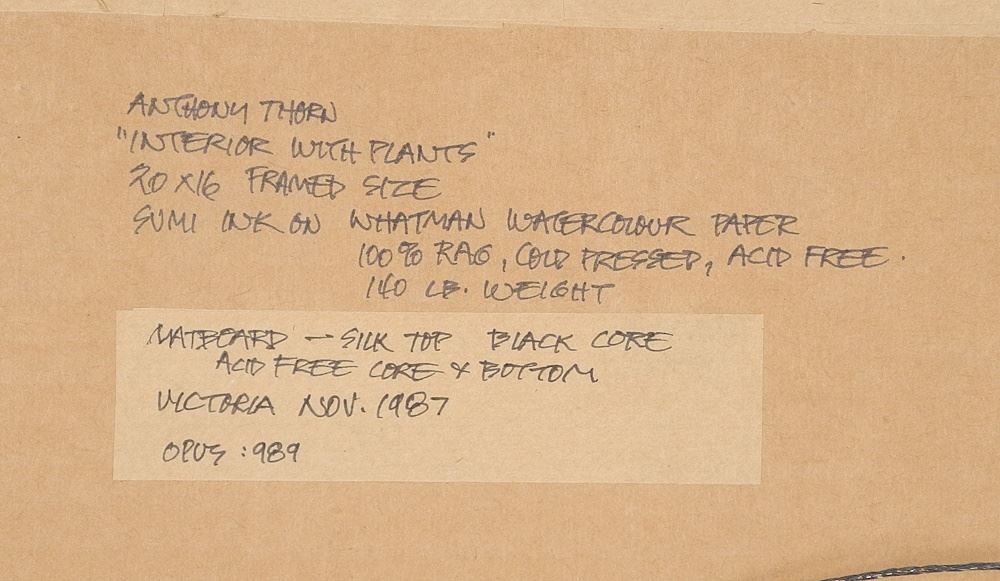 ANTHONY THORN
"INTERIOR WITH PLANTS"
20 X16 FRAMED SIZE
SUMI INK ON WHATMAN WATERCOLOUR PAPER
100% RAG, COLD PRESSED, ACID FREE.
140 LB. WEIGHT
MATBOARD — SILK TOP BLACK CORE
ACID FREE CORE & BOTTOM
VICTORIA NOV. 1987
OPUS : 989